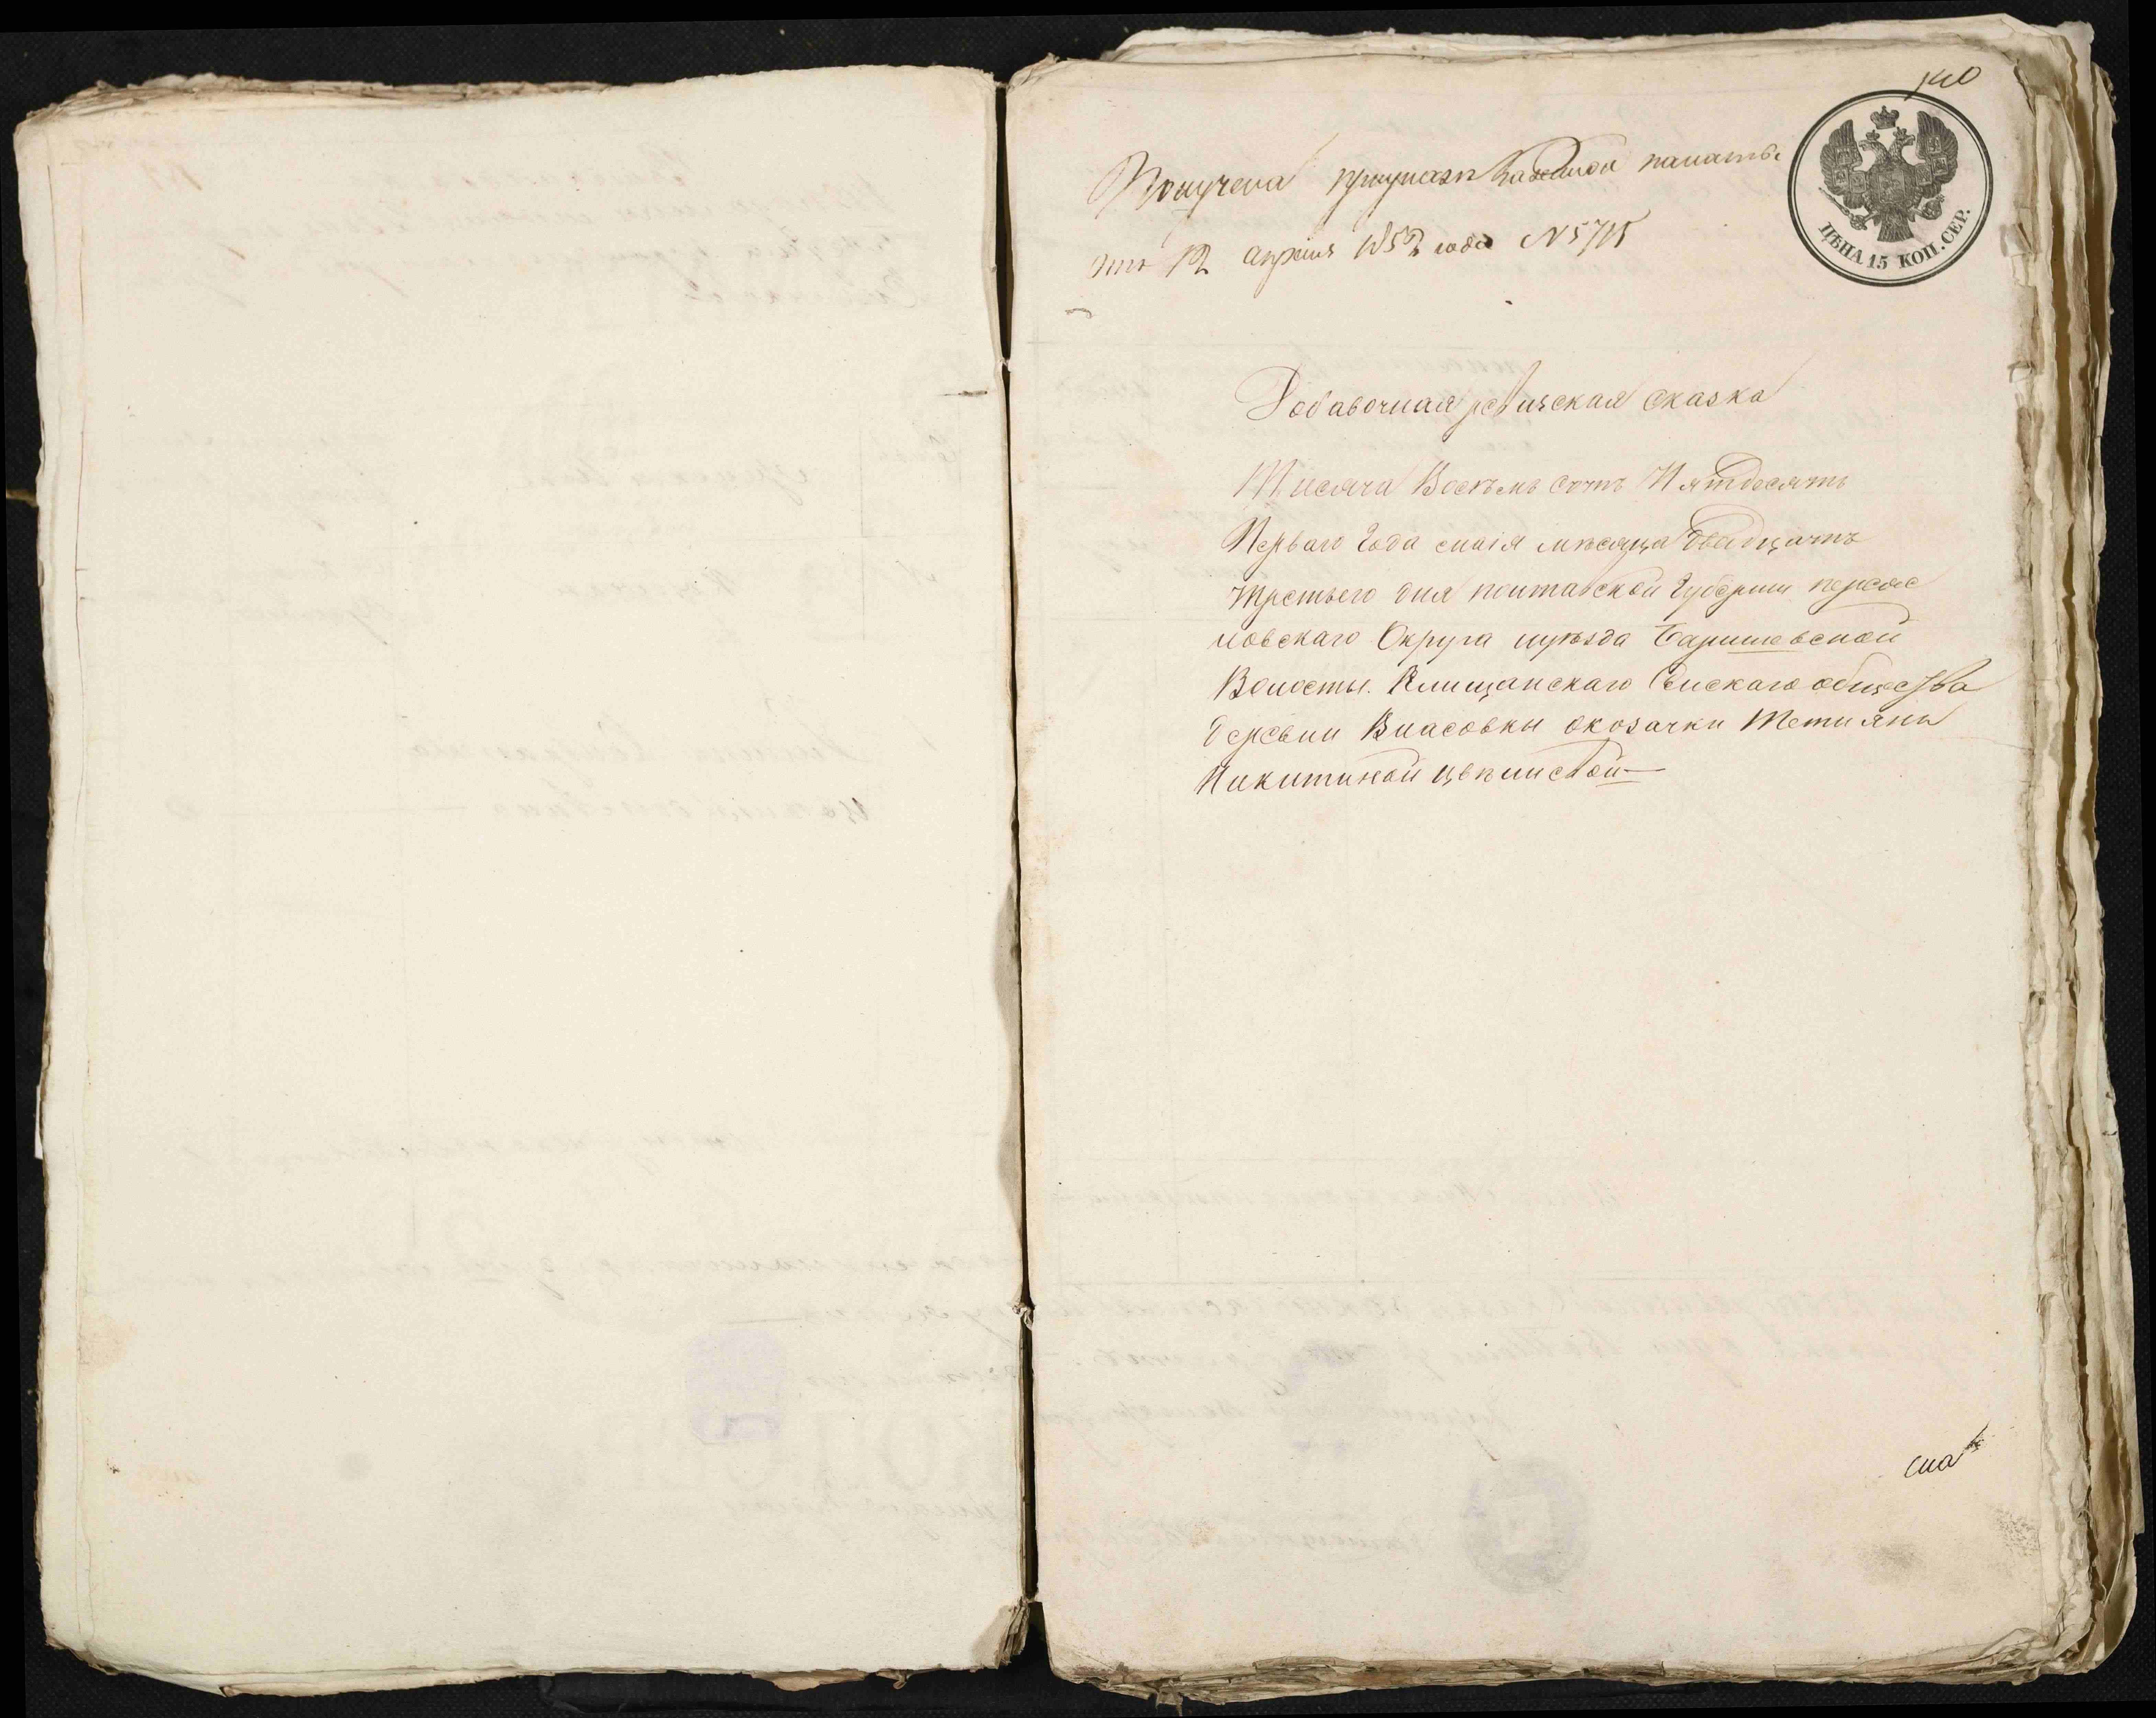 140
Получена при указѣ Казенной палаты
отъ 12 апреля 1852 года N 5715
ЦѢНА 15 КОП. СЕР.
Добавочная ревизская сказка
Тисяча Восемь сотъ Пятдесять
Перваго Года маія месяца двадцать
третьего дня полтавской Губерніи переяс
ловскаго Округа иуезда Баришевской
Волосты. Селищанскаго Сельскаго общества
деревни Власовки окозачки Тетияны
Никитиной